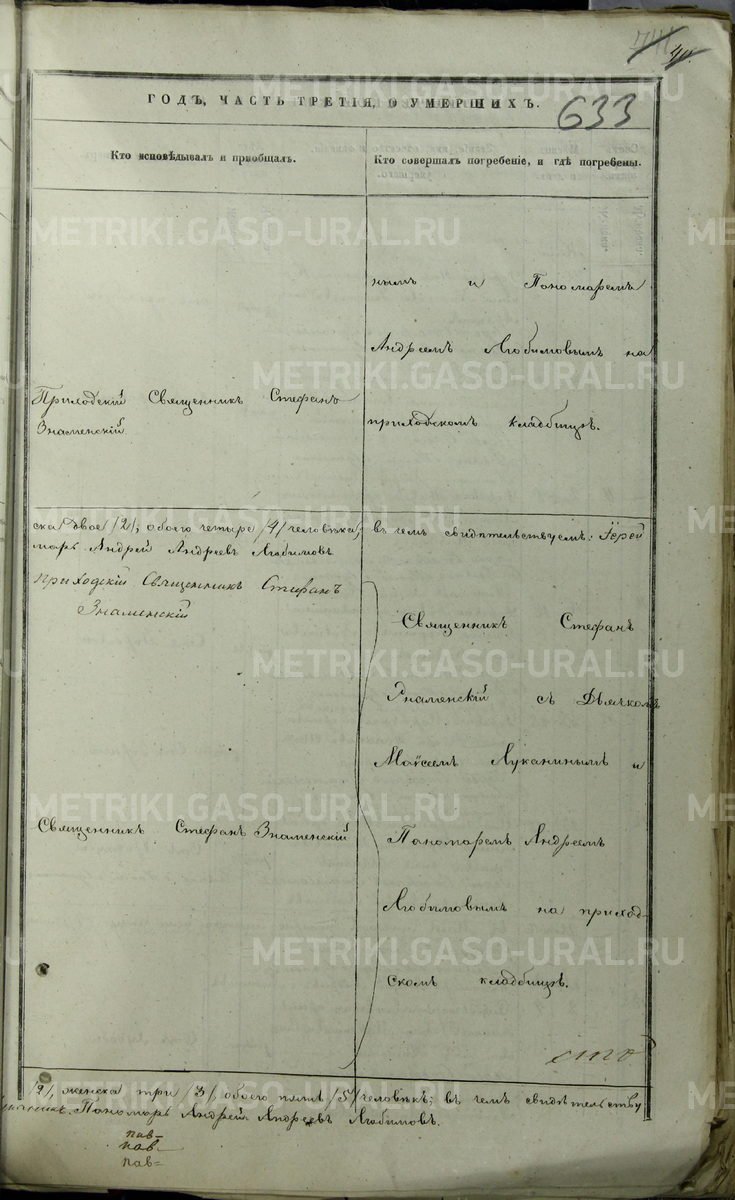 633
ГОДЪ, ЧАСТЬ ТРЕТІЯ, О УМЕРШИХЪ.
Кто исповѣдывалъ и пріобщалъ.
Кто совершалъ погребеніе, и гдѣ погребены.
METRIKI.GASO-URAL.RU
нымъ и Пономаремъ
Андреемъ Любимовымъ на
приходскомъ кладбищѣ.
Приходскій Священникъ Стефанъ
Знаменскій
ска двое /2/, обоего четыре /4/ человѣка;
марь Андрей Андреевъ Любимовъ
въ чемъ свидѣтельствуемъ: Іерей
приходскій Священникъ Стефанъ
Знаменскій
Священникъ Стефанъ
Знаменскій съ Дьячкомъ
Моисеемъ Луканинымъ и
Пономаремъ Андреемъ
Любимовымъ на приход-
скомъ кладбищѣ.
Священникъ Стефанъ Знаменскій
/2/, женска три /3/ обоего пять /5/ человѣкъ; въ чемъ свидѣтельству
Пономарь Андрей Андреевъ Любимовъ.